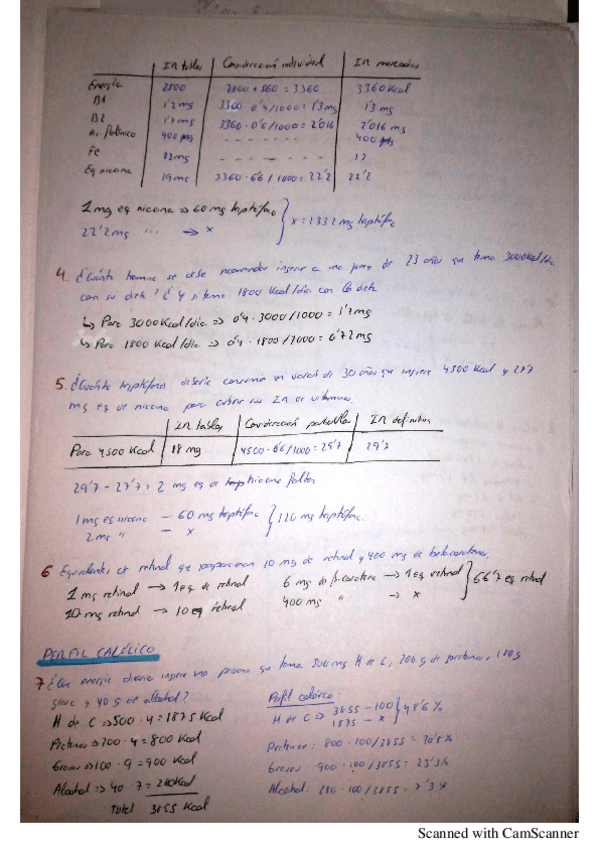 IR tablas Consideración individual IR mercados
Energía 2800 2800 + 560 = 3360 3360 Kcal
B1 1'2 mg 3300 · 0'4/1000 = 1'3 mg 1'3 mg
B2 1'7 mg 3360 · 0'6/1000 = 2'016 2'016 mg
Ac. Fólico 400 µg - - - - - - 400 µg
Fe 12 mg - - - - - - 12
Eq niacina 19 mg 3360 · 6'6/1000 = 22'2 22'2
1 mg eq niacina => 60 mg triptófano
22'2 mg " -> x } x = 1332 mg triptófano
4. ¿Cuánta tiamina se debe recomendar ingerir a una joven de 23 años que toma 3000 Kcal/día
con su dieta? ¿Y si toma 1800 Kcal/día con la dieta
↳ Para 3000 Kcal/día => 0'4 · 3000/1000 = 1'2 mg
↳ Para 1800 Kcal/día => 0'4 · 1800/1000 = 0'72 mg
5. ¿Cuánto triptófano debería consumir un varón de 30 años que ingiere 4500 Kcal y 27'7
mg eq de niacina para cubrir sus IR de vitamina.
IR tablas Consideración IR definitiva
Para 4500 Kcal 18 mg 4500 · 6'6/1000 = 29'7 29'7
29'7 - 27'7 = 2 mg eq de niacina faltan
1 mg eq niacina — 60 mg triptófano
2 mg " — x } 120 mg triptófano.
6 Equivalentes de retinol que proporcionan 10 mg de retinol y 400 mg de betacaroteno.
1 mg retinol -> 1 eq de retinol 6 mg de β-caroteno -> 1 eq retinol
10 mg retinol -> 10 eq retinol 400 mg " -> x } 66'7 eq retinol
PERFIL CALÓRICO
7 ¿Que energía diaria ingiere una persona que toma 500 mg H de C, 200 g de proteínas, 100 g
grasa y 40 g de alcohol?
H de C => 500 · 4 = 1875 Kcal
Proteínas => 200 · 4 = 800 Kcal
Grasas => 100 · 9 = 900 Kcal
Alcohol => 40 · 7 = 280 Kcal
Total 3855 Kcal
Perfil calórico:
H de C => 3855 - 100
1875 - x } 48'6 %
Proteínas: 800 · 100/3855 = 20'8%
Grasas: 900 · 100/3855 = 23'3%
Alcohol: 280 · 100/3855 = 7'3%
Scanned with CamScanner